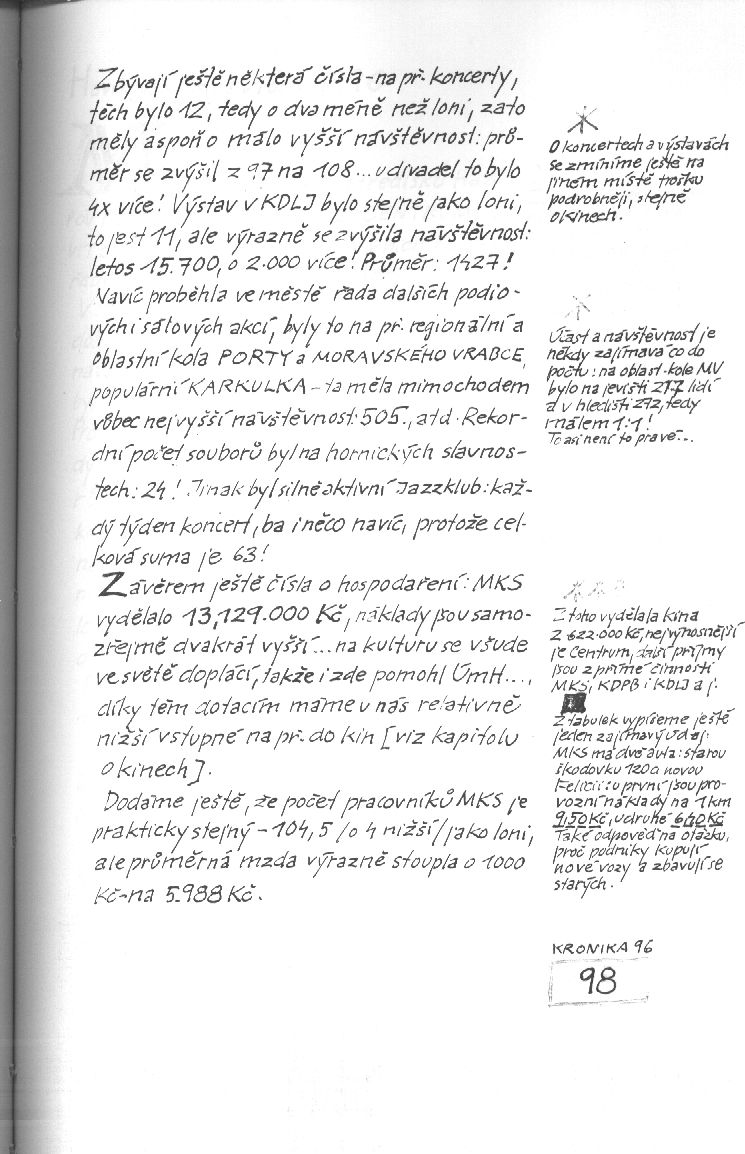 Zbývají ještě některá čísla - např. koncerty,
těch bylo 12, tedy o dva méně než loni, zato
měly aspoň o málo vyšší návštěvnost: prů-
měr se zvýšil z 97 na 108... u divadel to bylo
4x více! Výstav v KDLJ bylo stejně jako loni,
to jest 11, ale výrazně se zvýšila návštěvnost:
letos 15.700, o 2.000 více! Průměr: 1427!
Navíc proběhla ve městě řada dalších podio-
vých i sálových akcí, byly to na př. regionální a
oblastní kola PORTY a MORAVSKÉHO VRABCE,
populární KARKULKA - ta měla mimochodem
vůbec nejvyšší návštěvnost: 505., atd. Rekor-
dní počet souborů byl na hornických slavnos-
tech: 24! Jinak byl silně aktivní Jazzklub: kaž-
dý týden koncert, ba i něco navíc, protože cel-
ková suma je 63!
Závěrem ještě čísla o hospodaření: MKS
vydělalo 13,129.000 Kč, náklady jsou samo-
zřejmě dvakrát vyšší... na kulturu se všude
ve světě doplácí, takže i zde pomohl ÚmH...,
díky těm dotacím máme u nás relativně
nižší vstupné na př. do kin [viz kapitolu
o kinech].
Dodáme ještě, že počet pracovníků MKS je
prakticky stejný - 104,5 /o 4 nižší/ jako loni,
ale průměrná mzda výrazně stoupla o 1000
Kč - na 5.988 Kč.
O koncertech a výstavách
se zmíníme ještě na
jiném místě trošku
podrobněji, stejně
o kinech.
Účast a návštěvnost je
někdy zajímavá co do
počtu: na oblast. kole MV
bylo na jevišti 277 lidí
a v hledišti 272, tedy
málem 1:1!
To asi není to pravé...
Z toho vydělala kina
2.622.000 Kč, nejvýnosnější
je Centrum, další příjmy
jsou z přímé činnosti
MKS, KDPB i KDLJ aj.
Z tabulek vypíšeme ještě
jeden zajímavý údaj:
MKS má dvě auta: starou
škodovku 120 a novou
Felicii: u první jsou pro-
vozní náklady na 1 km
9,50 Kč, u druhé 6,40 Kč
Také odpověď na otázku,
proč podniky kupují
nové vozy a zbavují se
starých.
KRONIKA 96
98